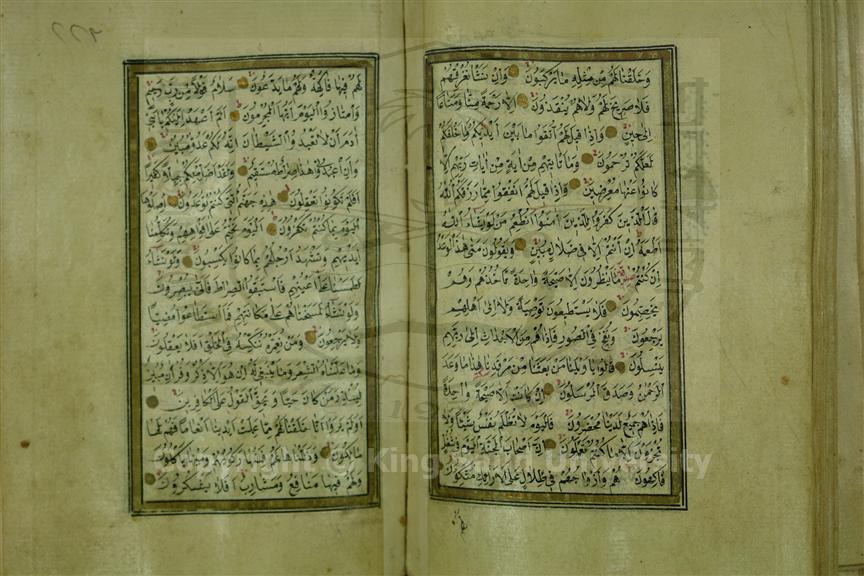 وخلقنا لهم من مثله ما يركبون وان نشا نغرقهم
فلا صريخ لهم ولا هم ينقذون الا رحمة منا ومتاعا
الى حين واذا قيل لهم اتقوا ما بين ايديكم وما خلفكم
لعلكم ترحمون وما تاتيهم من اية من ايات ربهم الا
كانوا عنها معرضين واذا قيل لهم انفقوا مما رزقكم الله
قال الذين كفروا للذين امنوا انطعم من لو يشاء الله
اطعمه ان انتم الا في ضلال مبين ويقولون متى هذا الوعد
ان كنتم صادقين ما ينظرون الا صيحة واحدة تاخذهم وهم
يخصمون فلا يستطيعون توصية ولا الى اهلهم
يرجعون ونفخ في الصور فاذا هم من الاجداث الى ربهم
ينسلون قالوا يا ويلنا من بعثنا من مرقدنا هذا ما وعد
الرحمن وصدق المرسلون ان كانت الا صيحة واحدة
فاذا هم جميع لدينا محضرون فاليوم لا تظلم نفس شيئا ولا
تجزون الا ما كنتم تعملون ان اصحاب الجنة اليوم في شغل
فاكهون هم وازواجهم في ظلال على الارائك متكؤن
لهم فيها فاكهة ولهم ما يدعون سلام قولا من رب رحيم
وامتازوا اليوم ايها المجرمون الم اعهد اليكم يا بني
ادم ان لا تعبدوا الشيطان انه لكم عدو مبين
وان اعبدوني هذا صراط مستقيم ولقد اضل منكم جبلا كثيرا
افلم تكونوا تعقلون هذه جهنم التي كنتم توعدون اصلوها
اليوم بما كنتم تكفرون اليوم نختم على افواههم وتكلمنا
ايديهم وتشهد ارجلهم بما كانوا يكسبون ولو نشاء
لطمسنا على اعينهم فاستبقوا الصراط فانى يبصرون
ولو نشاء لمسخناهم على مكانتهم فما استطاعوا مضيا
ولا يرجعون ومن نعمره ننكسه في الخلق افلا يعقلون
وما علمناه الشعر وما ينبغي له ان هو الا ذكر وقران مبين
لينذر من كان حيا ويحق القول على الكافرين
اولم يروا انا خلقنا لهم مما عملت ايدينا انعاما فهم لها
مالكون وذللناها لهم فمنها ركوبهم ومنها ياكلون
ولهم فيها منافع ومشارب افلا يشكرون